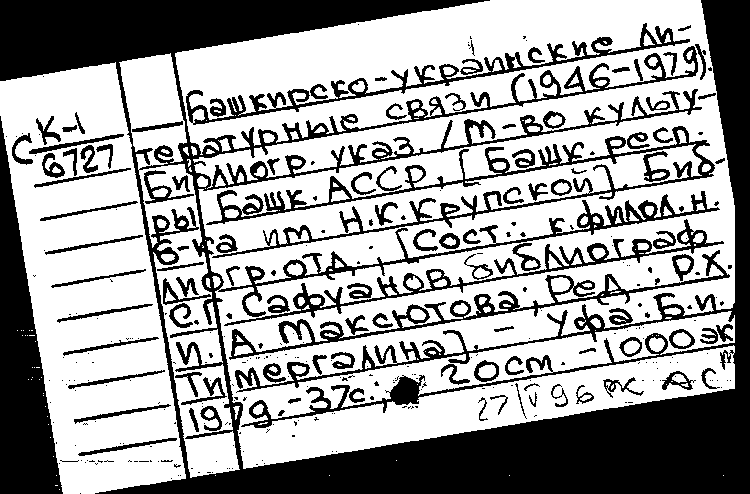 Башкирско-украинские ли-
тературные связи (1946-1979):
С К-1
6727
Библиогр. указ. / М-во культу-
ры Башк. АССР, [Башк. респ.
б-ка им. Н.К.Крупской]. Биб-
лиогр. отд.; [Сост.: к.филол.н.
С.Г. Сафуанов, библиограф
И. А. Максютова; Ред.: Р.Х.
Тимергалина]. - Уфа: Б.и.,
1979.-37с.; 20см. -1000эк
27/V 96